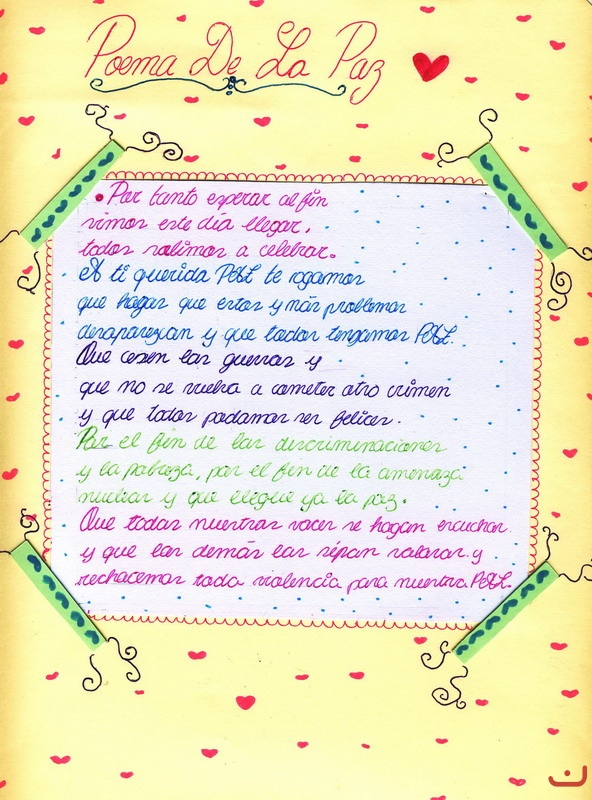 Poema De La Paz
Por tanto esperar al fin
vimos este día llegar,
todos salimos a celebrar.
A ti querida PAZ te rogamos
que hagas que estos y más problemas
desaparezcan y que todos tengamos PAZ.
Que cesen las guerras y
que no se vuelva a cometer otro crimen
y que todos podamos ser felices.
Por el fin de las discriminaciones
y la pobreza, por el fin de la amenaza
nuclear y que llegue ya la paz.
Que todas nuestras voces se hagan escuchar
y que los demás las sépan valorar y
rechacemos toda violencia para nuestra PAZ.